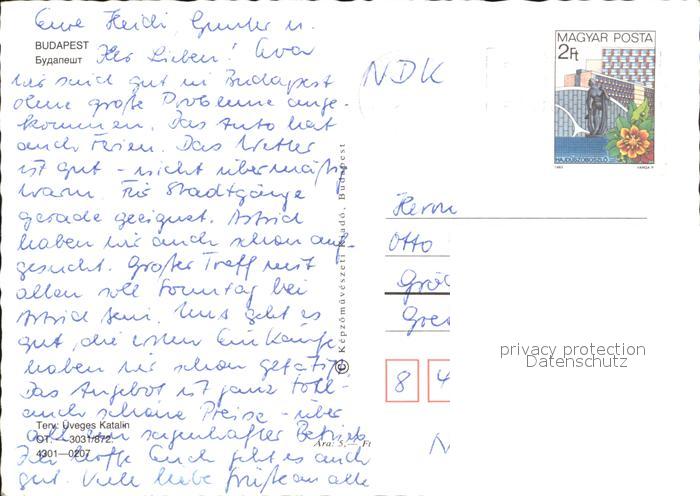 Eure Heidi, Gunter u.
BUDAPEST
Будапешт
Ihr Lieben!
wir sind gut in Budapest
ohne große Probleme ange-
kommen. Das Auto hat
auch Ferien. Das Wetter
ist gut - nicht übermäßig
warm. Für Stadtgänge
gerade geeignet. Astrid
haben wir auch schon auf-
gesucht. Großer Treff mit
allen soll Sonntag bei
Astrid sein. Uns geht es
gut, die ersten Einkäufe
haben wir schon getätigt.
Das Angebot ist ganz toll -
auch schöne Preise - über
all ein sagenhafter Betrieb.
Ich hoffe Euch geht es auch
gut. Viele liebe Grüße an alle
Terv: Üveges Katalin
OT. — 3031/872.
4301—0207
Ára: 5,— Ft
© Képzőművészeti Kiadó, Budapest
NDK
MAGYAR POSTA
2Ft
HAJDÚSZOBOSZLÓ
1983 VARGA P.
Herrn
Otto
8 4
N
privacy protection
Datenschutz